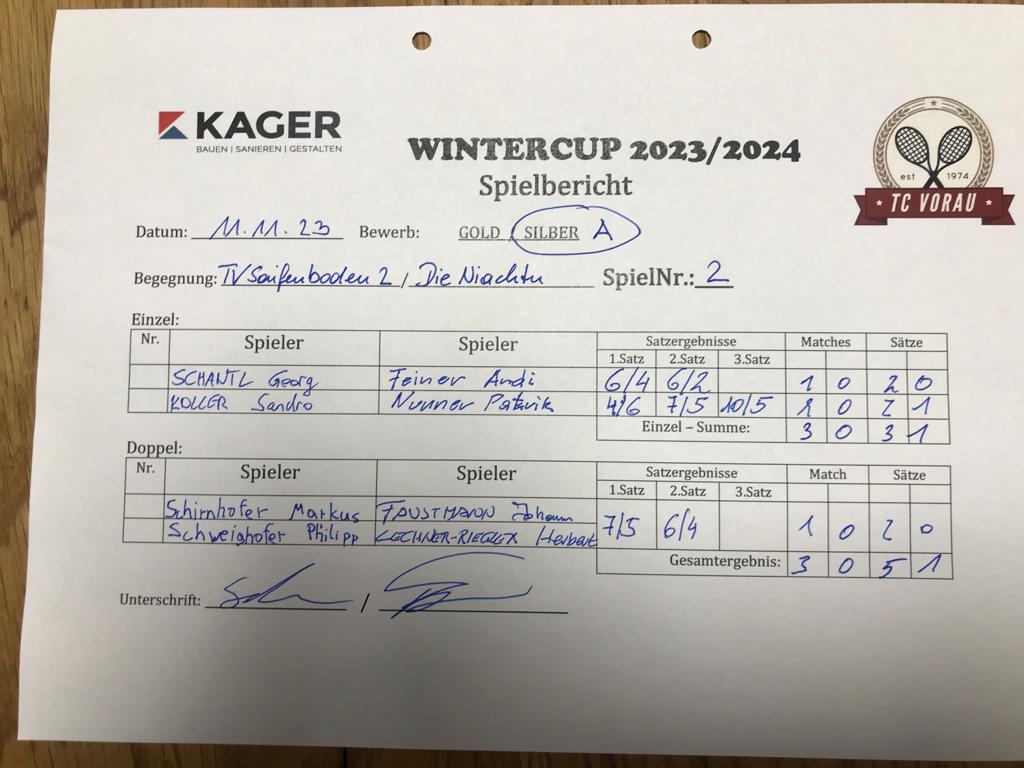 KAGER
BAUEN | SANIEREN | GESTALTEN
WINTERCUP 2023/2024
Spielbericht
est 1974
TC VORAU
Datum: 11.11.23 Bewerb: GOLD / SILBER A
Begegnung: TV Saifenboden 2 / Die Niachtn SpielNr.: 2
Einzel:
Nr. Spieler Spieler Satzergebnisse Matches Sätze
1.Satz 2.Satz 3.Satz
SCHANTL Georg Feiner Andi 6/4 6/2 1 0 2 0
KOLLER Sandro Nunner Patrik 4/6 7/5 10/5 0 2 1
Einzel – Summe: 3 0 3 1
Doppel:
Nr. Spieler Spieler Satzergebnisse Match Sätze
1.Satz 2.Satz 3.Satz
Schirnhofer Markus FAUSTMANN Johann
Schweighofer Philipp LECHNER-RIEGLER Herbert 7/5 6/4 1 0 2 0
Gesamtergebnis: 3 0 5 1
Unterschrift: /